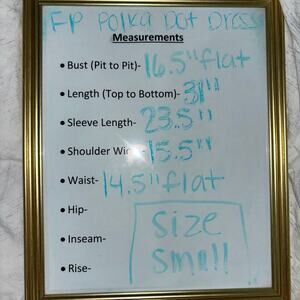 FP Polka Dot Dress
Measurements
• Bust (Pit to Pit)- 16.5" flat
• Length (Top to Bottom)- 31"
• Sleeve Length- 23.5"
• Shoulder Wid 15.5"
• Waist- 14.5" flat
• Hip-
• Inseam-
• Rise-
Size
Small